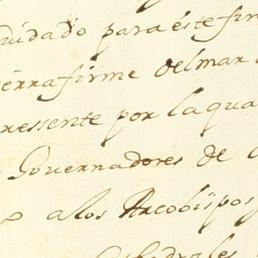 cuidado para este fin
tierra firme del mar
pressente por la qua
Governadores de
a los Arcobispos
Cathedrales